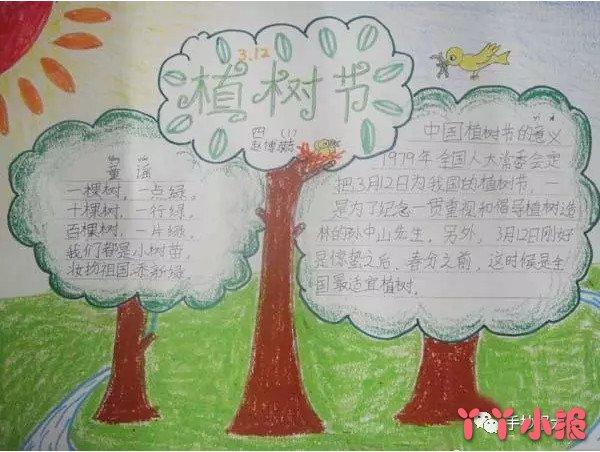 3.12
植树节
四(1)
童谣
一棵树，一点绿。
十棵树，一行绿，
百棵树，一片绿。
我们都是小树苗，
妆扮祖国添新绿
中国植树节的意义
1979年全国人大常委会定
把3月12日为我国的植树节，一
是为了纪念一贯重视和倡导植树造
林的孙中山先生。另外，3月12日刚好
是惊蛰之后，春分之前，这时候是全
国最适宜植树。
丫丫小报